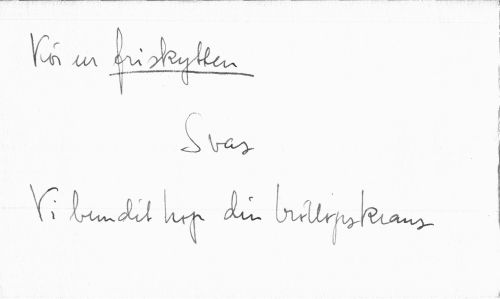 Kör ur friskytten
Svas
Vi bundit hop din bröllopskrans